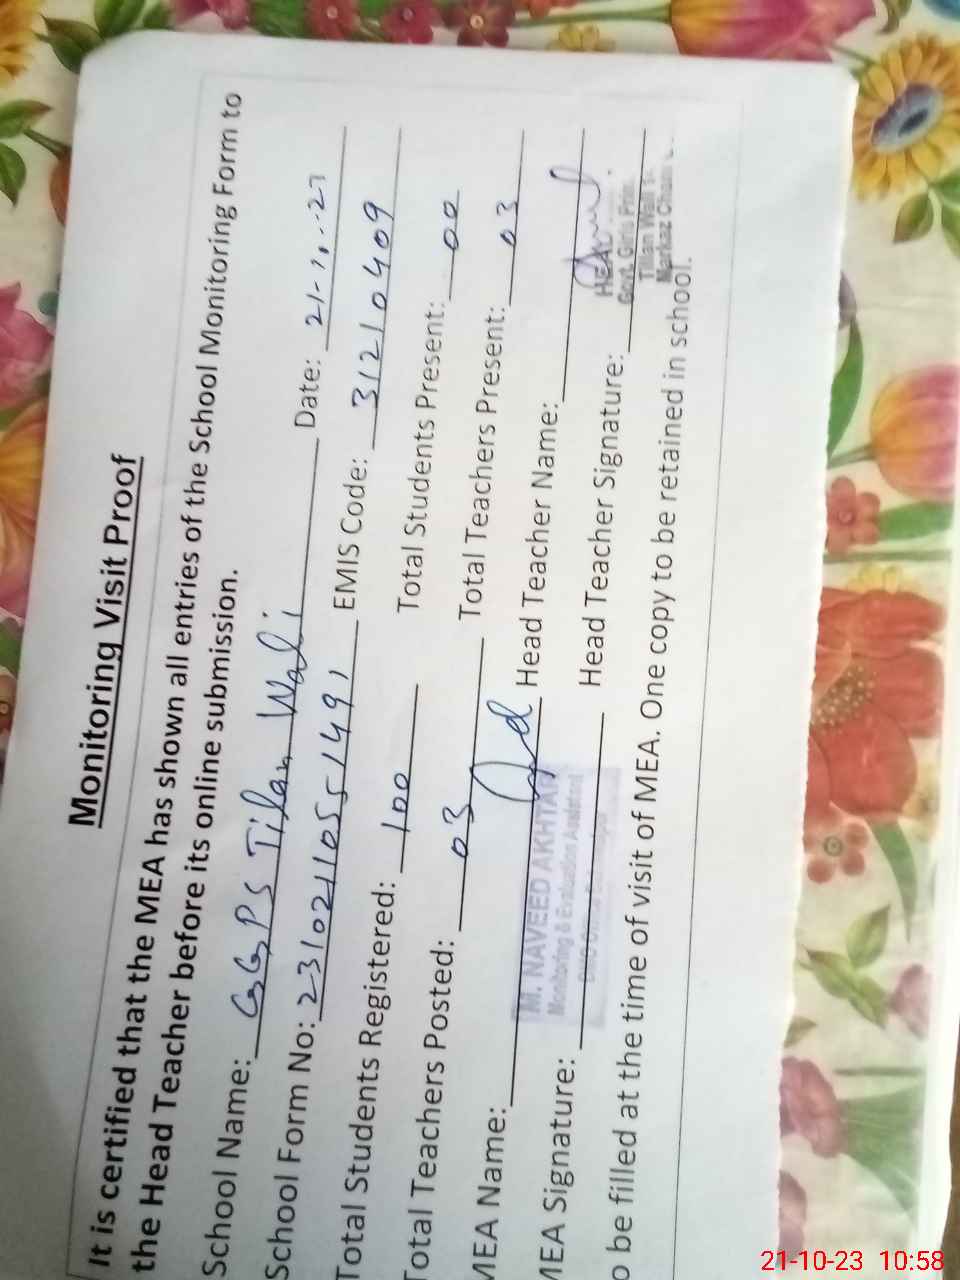 Monitoring Visit Proof
It is certified that the MEA has shown all entries of the School Monitoring Form to
the Head Teacher before its online submission.
School Name: GGPS Tilan Wali Date: 21-10-23
School Form No: 23102110551491 EMIS Code: 31210409
Total Students Registered: 100 Total Students Present: 00
Total Teachers Posted: 03 Total Teachers Present: 03
MEA Name: Head Teacher Name:
M. NAVEED AKHTAR
Monitoring & Evaluation Assistant
MEA Signature: Head Teacher Signature:
Govt. Girls Prim.
Tilan Wali
Markaz
o be filled at the time of visit of MEA. One copy to be retained in school.
21-10-23 10:58